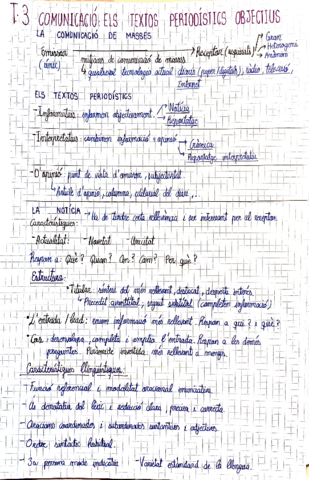 T.3 COMUNICACIÓ: ELS TEXTOS PERIODÍSTICS OBJECTIUS
LA COMUNICACIÓ DE MASSES
Emissor Receptor (audiència) Gran
(únic) mitjans de comunicació de masses Heterogeni
Anònim
quadruple tecnologia actual: diaris (paper/digitals), ràdio, televisió,
Internet
ELS TEXTOS PERIODÍSTICS
- Informatius: informen objectivament Notícia
Reportatge
- Interpretatius: combinen informació + opinió
Crònica
Reportatge interpretatiu
- D'opinió: punt de vista d'emissor, subjectivitat
Article d'opinió, columna, editorial del diari,...
LA NOTÍCIA - Ha de tindre certa rellevància i ser interessant per al receptor.
Característiques:
- Actualitat: - Novetat - Veracitat
Respon a: Què? Quan? On? Com? Per què?
Estructura:
• Titular: síntesi del més rellevant, destacat, desperta interés.
Precedit avantítol, seguit subtítol (completen informació)
• L'entrada / lead: resum informació més rellevant. Respon a què? i qui?
• Cos: desenvolupa, completa i amplia l'entrada. Respon a les demés
preguntes. Piràmide invertida: més rellevant a menys.
Característiques lingüístiques:
- Funció referencial i modalitat oracional enunciativa.
- Ús denotatiu del lèxic i redacció clara, precisa i correcta.
- Oracions coordinades i subordinades substantives i adjectives.
- Ordre sintàctic habitual.
- 3a persona mode indicatiu - Varietat estàndard de la llengua.